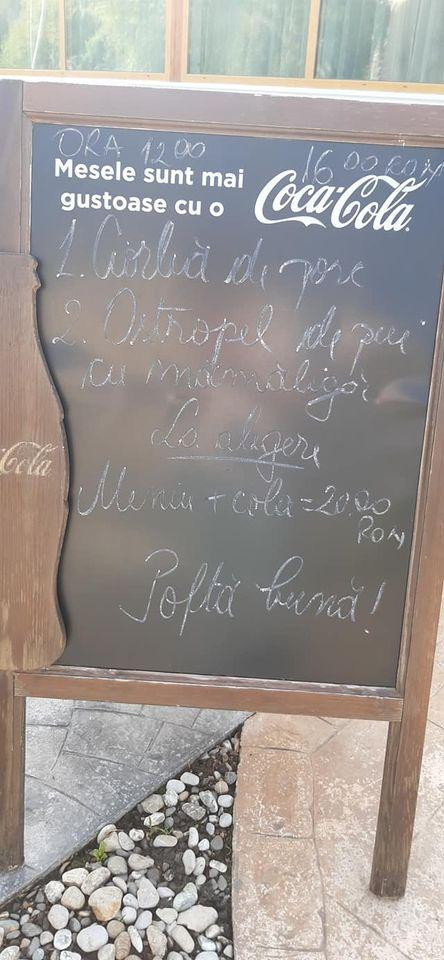 ORA 12 00
16 00 RON
Mesele sunt mai
gustoase cu o
Coca-Cola
1. Ciorbă de porc
2. Ostropel de pui
cu mămăligă
La alegere
Cola
Meniu + cola = 20.00
Ron
Poftă bună!